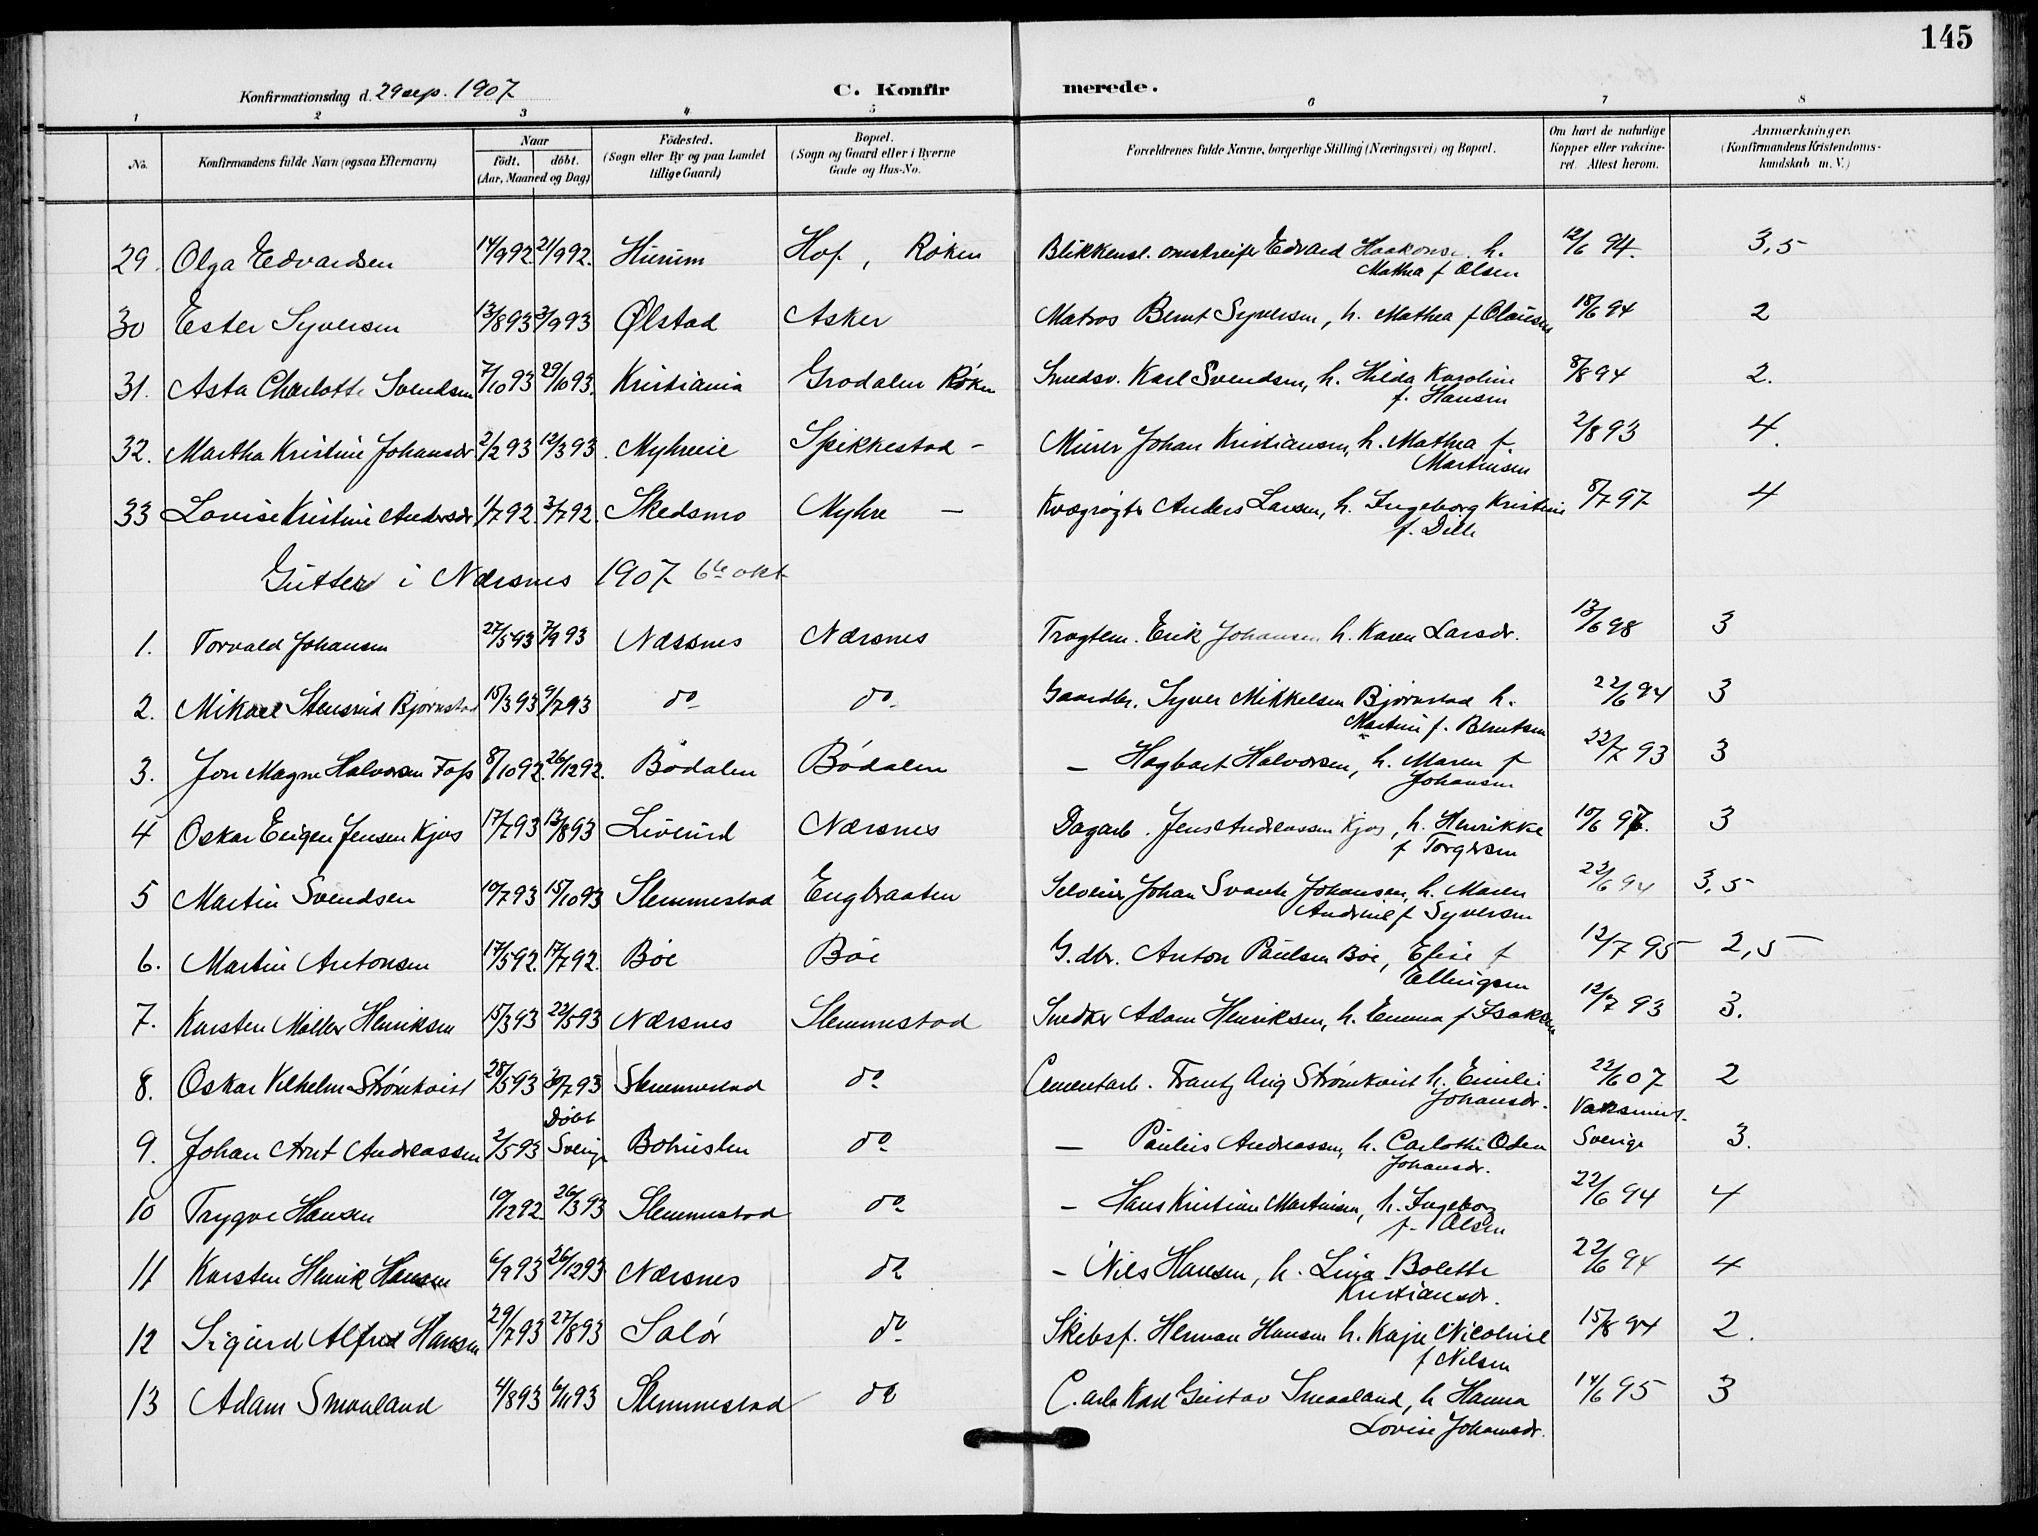 145
Konfirmationsdag d. 29 sep. 1907
C. Konfirmerede.
1 2 3 4 5 6 7 8
No.
Konfirmandens fulde Navn (ogsaa Efternavn)
Naar
født. døbt.
(Aar, Maaned og Dag)
Födested.
(Sogn eller By og paa Landet
tillige Gaard)
Bopæl.
(Sogn og Gaard eller i Byerne
Gade og Hus-No.
Forældrenes fulde Navne, borgerlige Stilling (Næringsvei) og Bopæl.
Om havt de naturlige
Kopper eller vakcine-
ret. Attest herom.
Anmærkninger.
(Konfirmandens Kristendoms-
kundskab m. V.)
29. Olga Edvardsen 14/9 92 21/9 92. Hurum Hof, Røken Blikkensl. omstreifer Edvard Haakons. h. 12/6 94. 3,5
Mathea f Olsen
30 Ester Syversen 13/8 93 3/9 93 Ølstad Asker Matros Bernt Syversen, h. Mathea f Clausen 18/6 94 2
31. Asta Charlotte Svendsen 7/10 93 29/10 93. Kristiania Grodalen Røken Smedsv. Karl Svendsen, h. Hilda Karoline 8/8 94 2.
f. Hansen
32. Martha Kristine Johansdr 2/2 93 12/3 93. Myhreie Spikkestad - Murer Johan Kristiansen, h. Mathea f 2/8 93 4.
Martinsen
33 Lovise Kristine Andersdr 1/7 92. 3/7 92. Skedsmo Myhre — Kvægrøgter Anders Larsen, h. Ingeborg Kristine 8/7 97 4
f. Dille
Gutter i Nærsnes 1907 6te okt
1. Torvald Johansen 27/5 93 7/9 93 Næssnes Nærsnes Tragtem. Erik Johansen h. Karen Larsdr. 13/6 98 3
2. Mikael Stensrud Bjørnstad 15/3 93 9/7 93 do do Gaardbr. Syver Mikkelsen Bjørnstad h. 22/6 94 3
Martine f. Berntsen
3. Jon Magne Halvorsen Foss 8/10 92. 26/12 92. Bødalen Bødalen — Hagbart Halvorsen, h. Maren f 22/7 93 3
Johansen
4 Oskar Eugen Jensen Kjos 17/7 93 13/8 93 Liverud Nærsnes Dagarb. Jens Andreassen Kjos, h. Henrikke 10/6 96. 3
f Torgersen
5 Martin Svendsen 10/7 93 15/10 93 Slemmestad Engbraaten Selveier Johan Svante Johansen, h. Maren 22/6 94 3,5
Andrine f Syversen
6. Martin Antonsen 17/5 92. 17/7 92. Bøe Bøe G.dbr. Anton Paulsen Bøe, Elise f 12/7 95 2,5
Ellingsen
7. Karsten Møller Henriksen 15/3 93 22/5 93 Nærsnes Slemmestad Snedker Adam Henriksen, h. Emma f Isaksen 12/7 93 3.
8. Oskar Vilhelm Strømkvist 28/5 93 30/7 93 Slemmestad do Cementarb. Frantz Aug Strømkvist h. Emilie 22/6 07 2
Johansdr.
9. Johan Arnt Andreassen 2/5 93 Døbt Sverige Bohuslen do — Paulus Andreassen, h. Carlotte Oden Vaksinert. Sverige 3.
Johansdr.
10 Trygve Hansen 10/12 92. 26/3 93 Slemmestad do – Hans Kristian Martinsen, h. Ingeborg 22/6 94 4
f. Olsen
11 Karsten Henrik Hansen 6/9 93 26/12 93 Nærsnes do – Nils Hansen, h. Lina Bolette 22/6 94 4
Kristiansdr.
12 Sigurd Alfred Hansen 29/7 93 27/8 93 Solør do Skibsf. Herman Hansen h. Kaja Nicoline 15/8 94 2.
f Nilsen
13 Adam Smaaland 4/8 93 6/11 93 Slemmestad do C. arb Karl Gustav Smaaland, h Hanna 14/6 95 3
Lovise Johansdr.